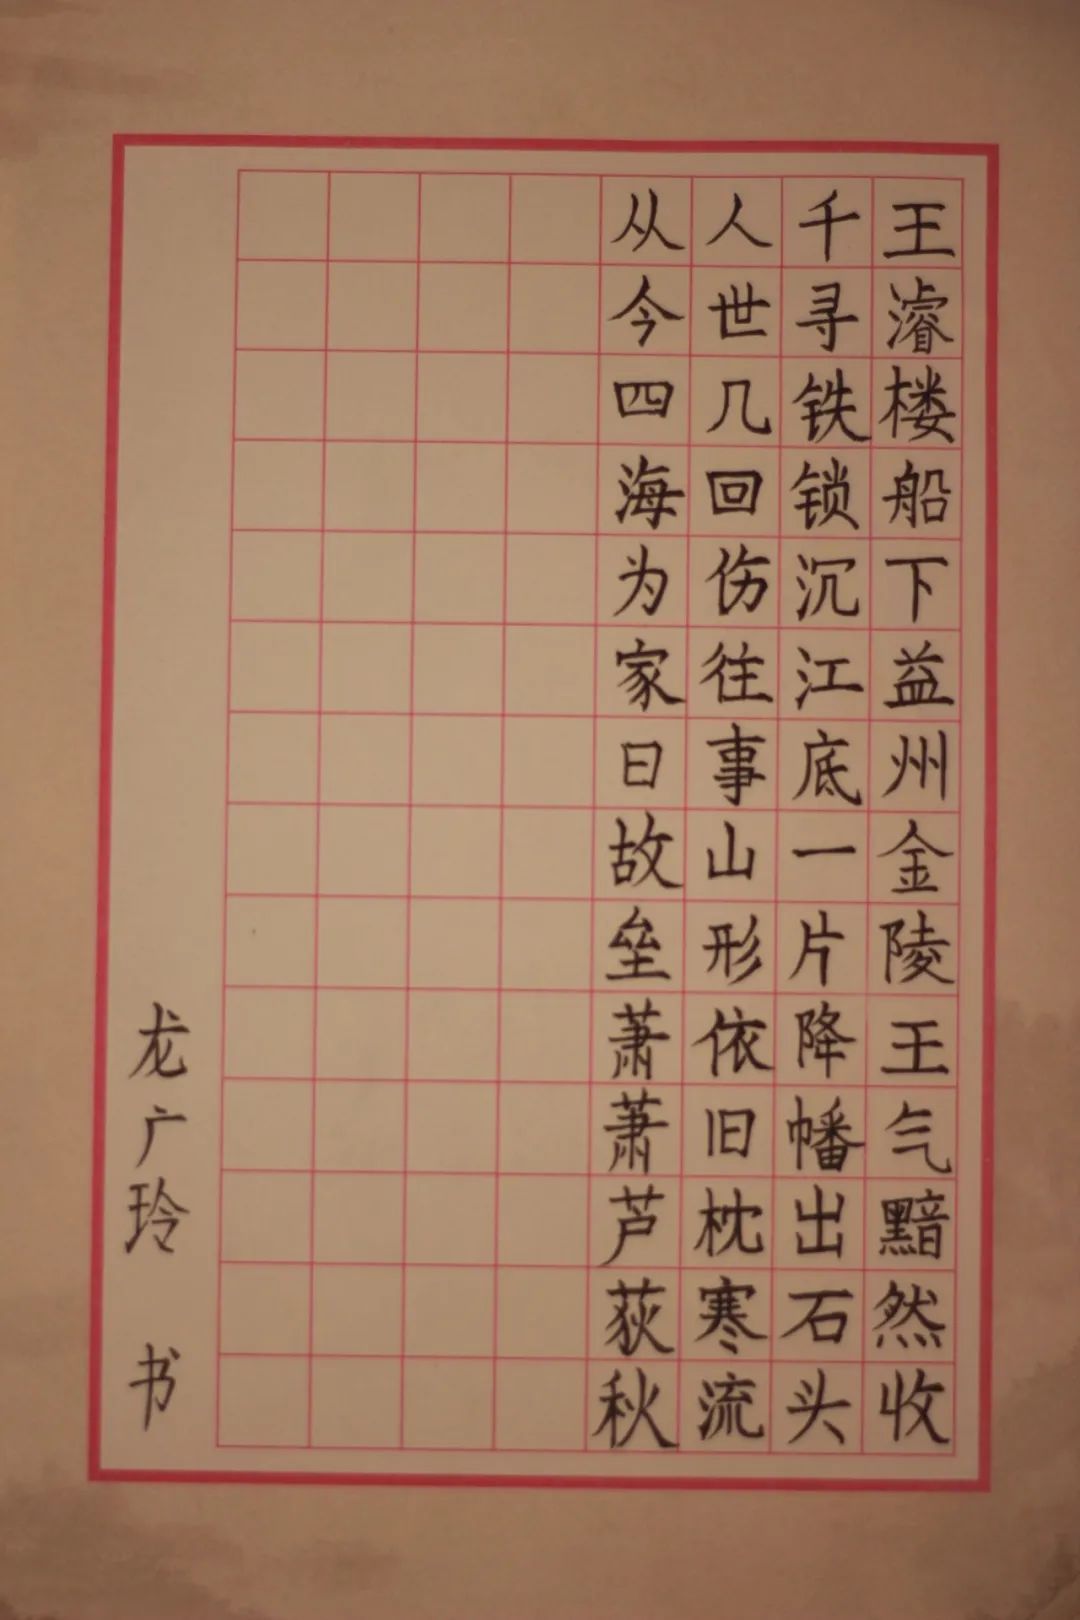 王濬楼船下益州金陵王气黯然收
千寻铁锁沉江底一片降幡出石头
人世几回伤往事山形依旧枕寒流
从今四海为家日故垒萧萧芦荻秋
龙广玲 书